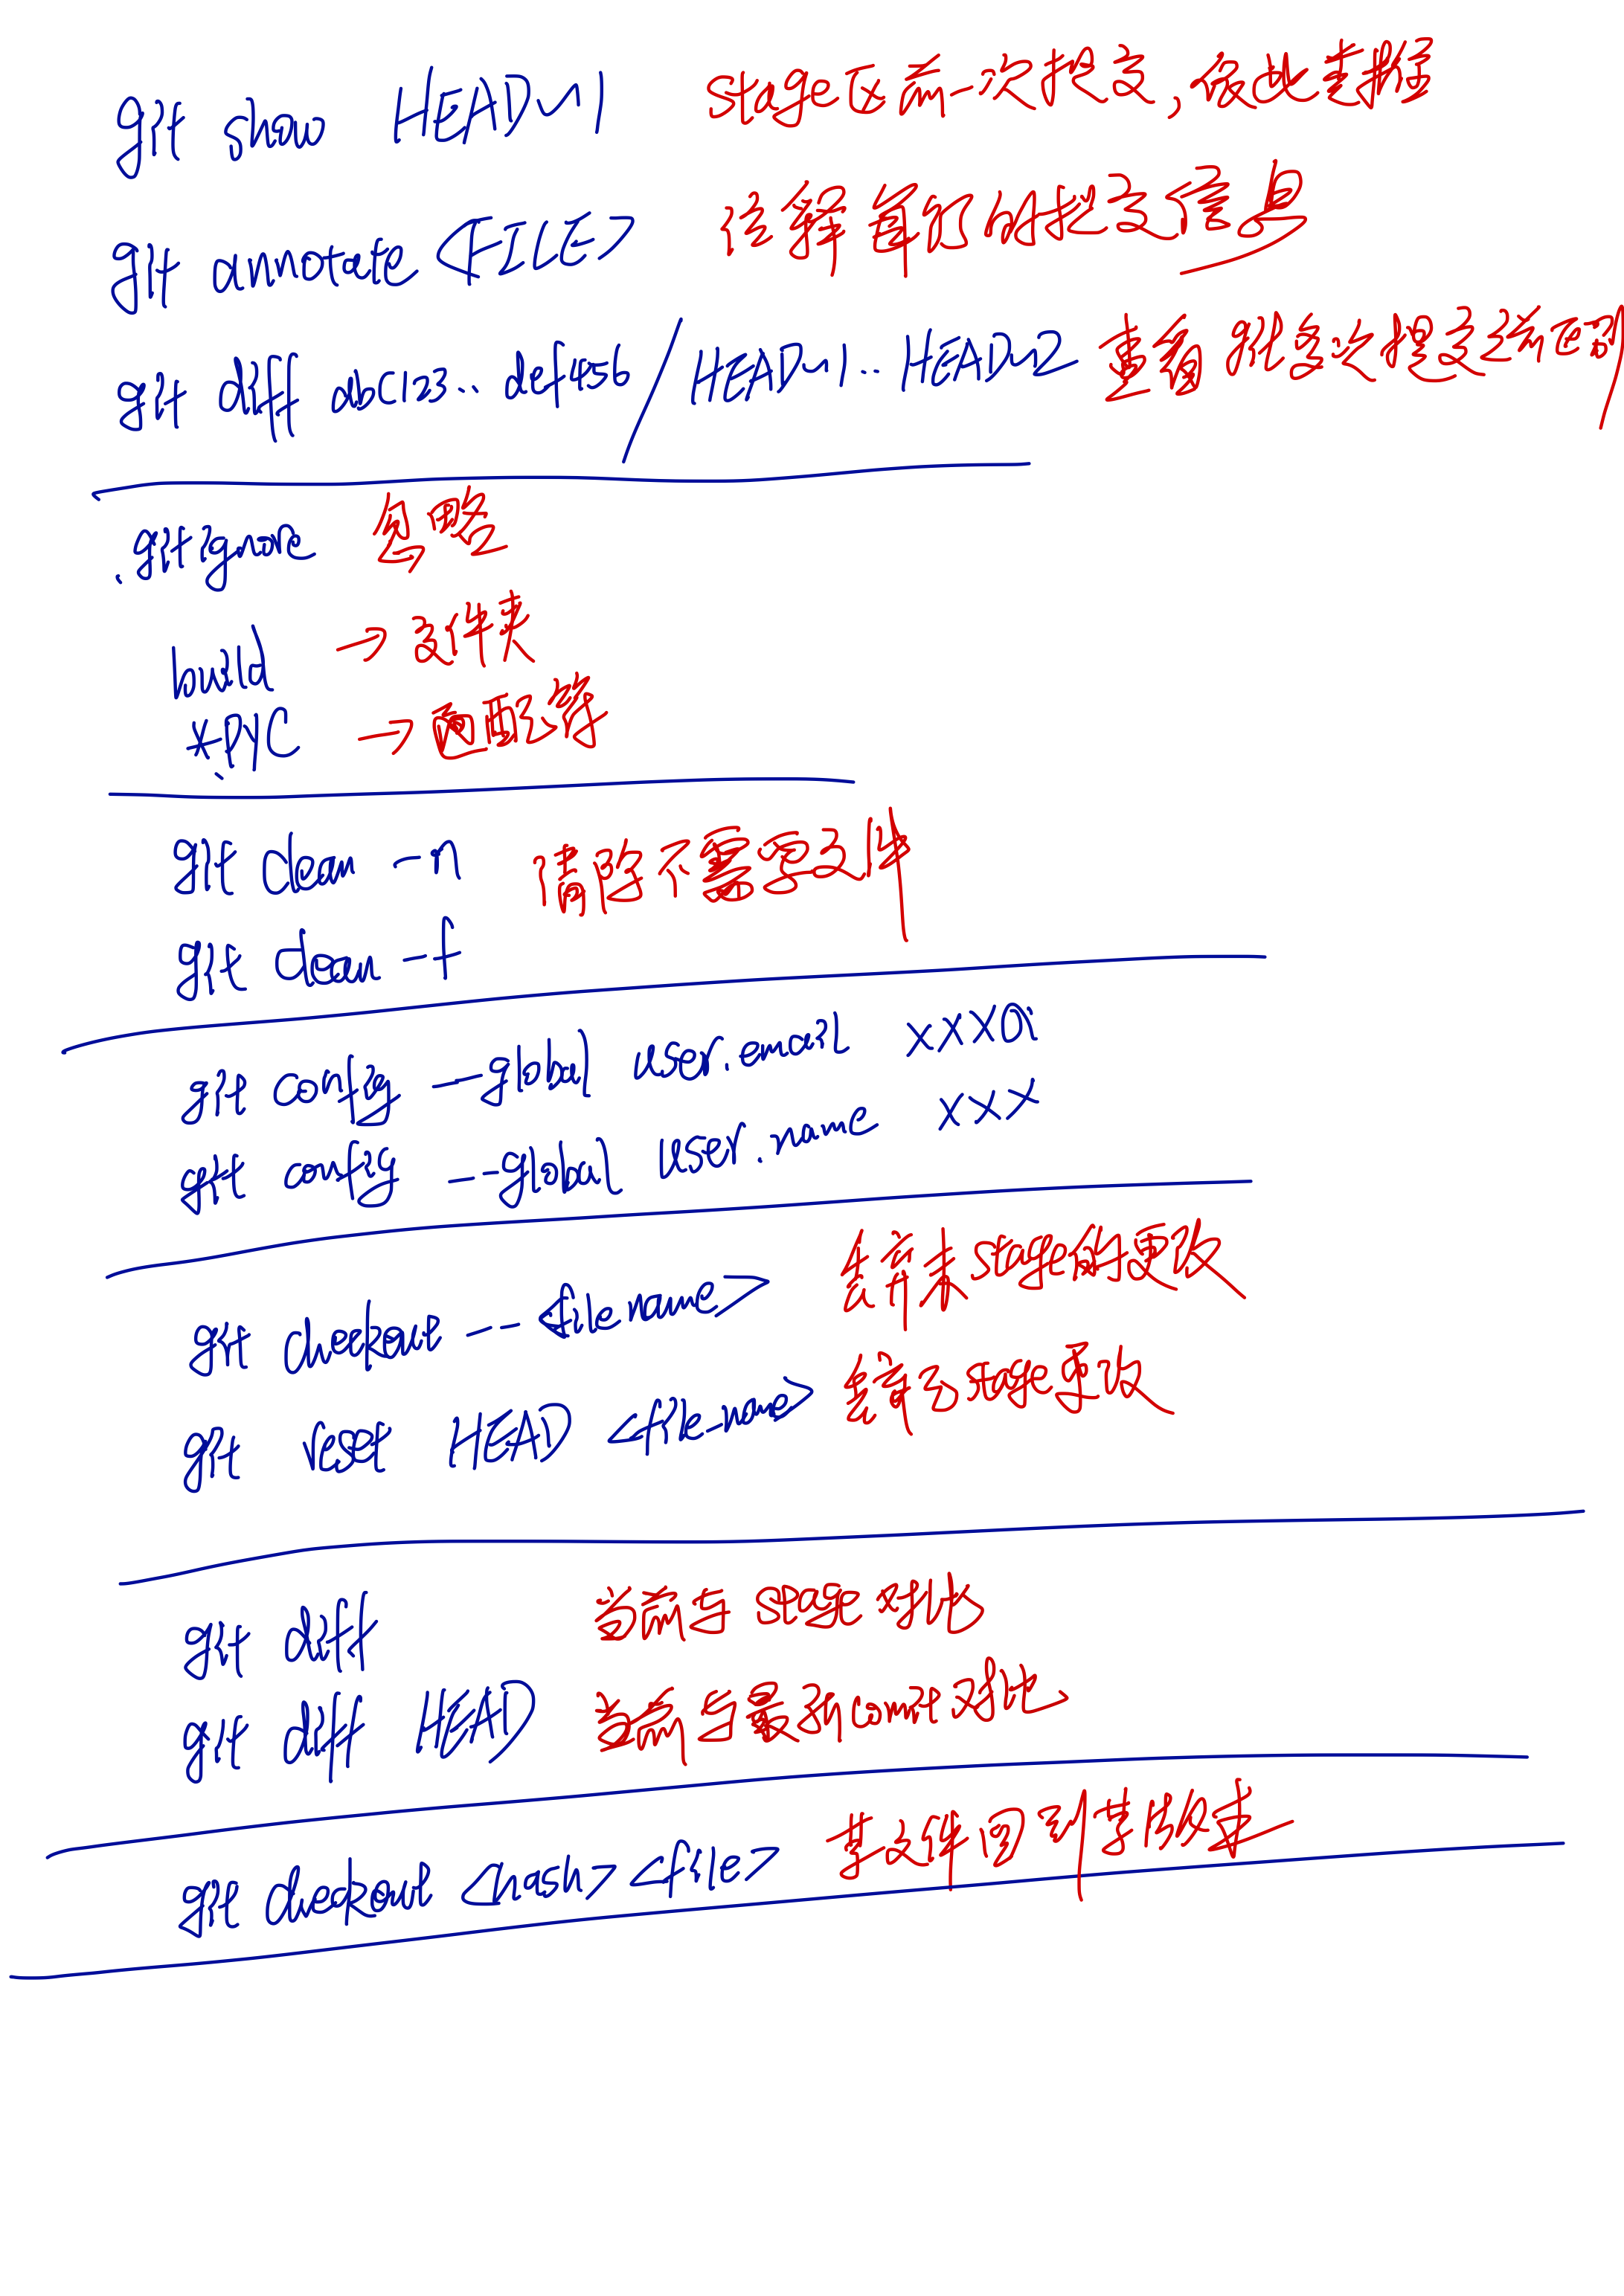 git show HEAD~1 stage区前一次提交,依此类推
git annotate <FILE> 任择首行的提交信息
git diff abc123..def456/HEAD~1..HEAD~2 查看 次提交之前
.gitignore 忽略
build → 文件夹
*.pyc → 通配符
git clean -n 清除不需要文件
git clean -f
git config --global user.email xxx@
git config --global user.name xxx
git checkout -- <file name> 丢弃未stage的更改
git reset HEAD <file-name> 丢弃已stage更改
git diff 当前与 stage 对比
git diff HEAD 当前与最新commit对比
git checkout <hash> <file> 某文件回到某版本